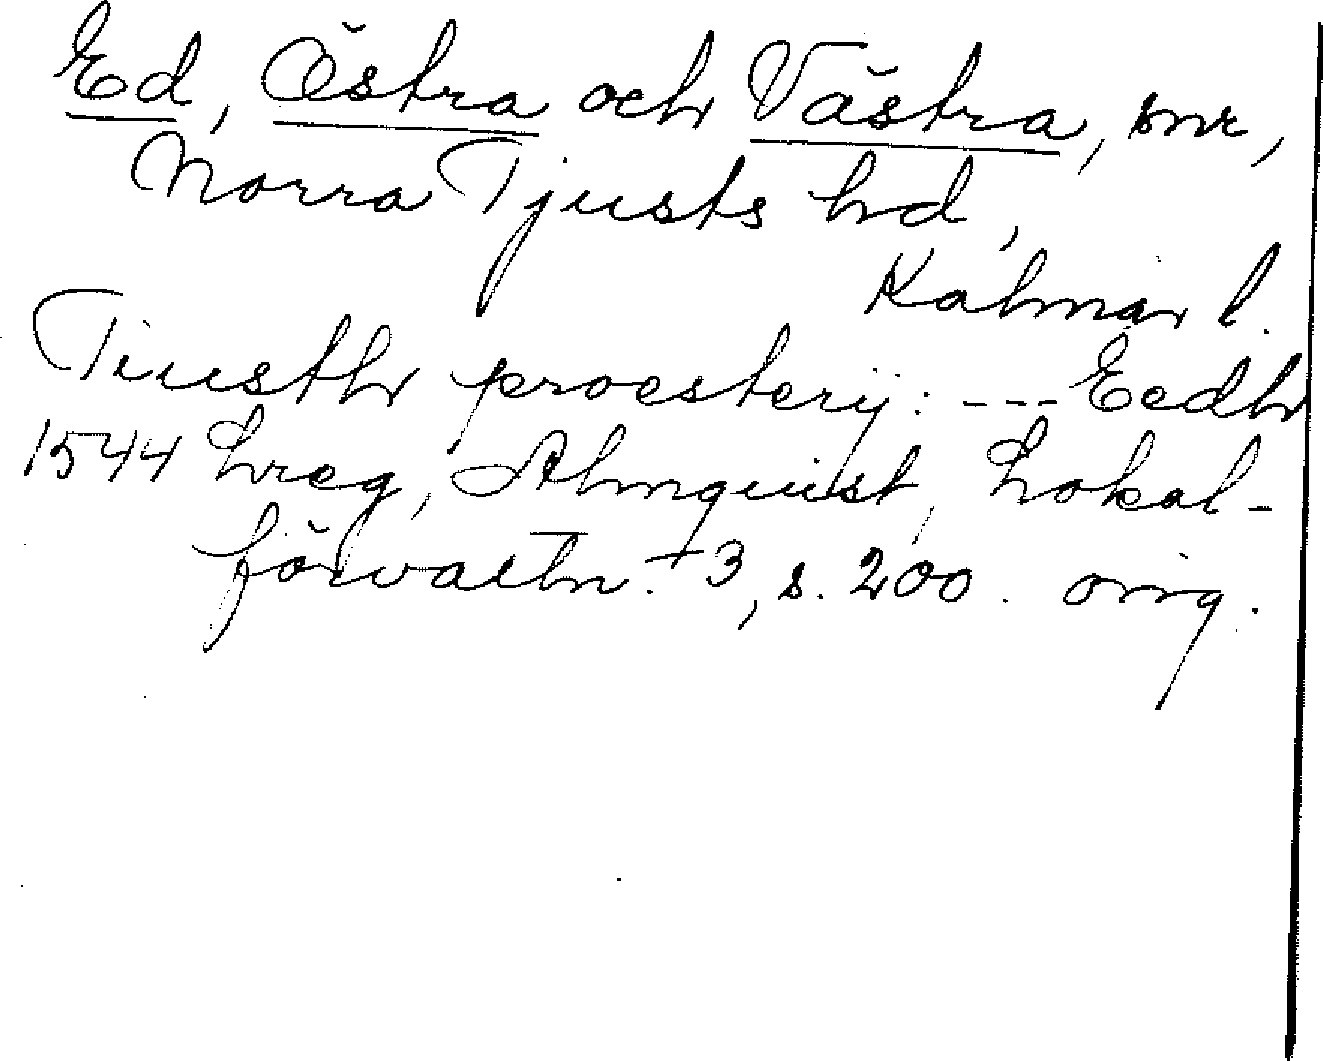 Ed, Östra och Västra, snr,
Norra Tjusts hd,
Kalmar l.
Tiusth proesterij: --- Eedh
1544 Lreg, Almquist, Lokal-
förvaltn. 3, s. 200. orig.